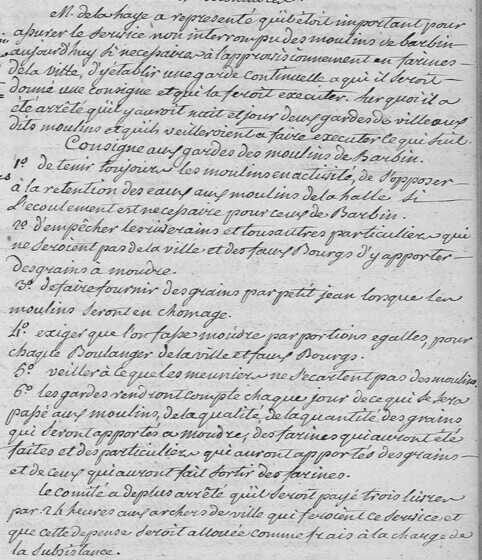 M. de la haye a representé qu'il étoit important pour
assurer le service non interrompu des moulins de barbin
aujourd'huy si necessaire à l'approvisionnement en farines
de la ville, d'y établir une garde continuelle a qui il seroit
donné une consigne et qui la feroit executer. Sur quoi il a
été arrêté qu'il y auroit nuit et jour deux gardes de ville aux
dits moulins et qu'ils veilleroient a faire executer ce qui suit.
Consigne aux gardes des moulins de Barbin.
1º de tenir toujours les moulins en activité, de s'opposer
à la retention des eaux aux moulins de la halle si
l'ecoulement est necessaire pour ceux de Barbin.
2º d'empêcher les riverains et tous autres particuliers qui
ne seroient pas de la ville et des faux Bourgs d'y apporter
des grains à moudre.
3º de faire fournir des grains par petit jean lorsque les
moulins seront en chomage.
4º exiger que l'on fasse moudre par portions egalles pour
chaque Boulanger de la ville et faux Bourgs.
5º veiller à ce que les meuniers ne s'ecartent pas des moulins.
6º les gardes rendront compte chaque jour de ce qui se sera
passé aux moulins, de la qualité, de la quantité des grains
qui seront apportés a moudre, des farines qui auront été
faites et des particuliers qui auront apportés des grains
et de ceux qui auront fait sortir des farines.
le comité a de plus arrêté qu'il seroit payé trois livres
par 24 heures aux archers de ville qui feroient ce service et
que cette depense seroit allouée comme frais à la charge de
la subsistance.